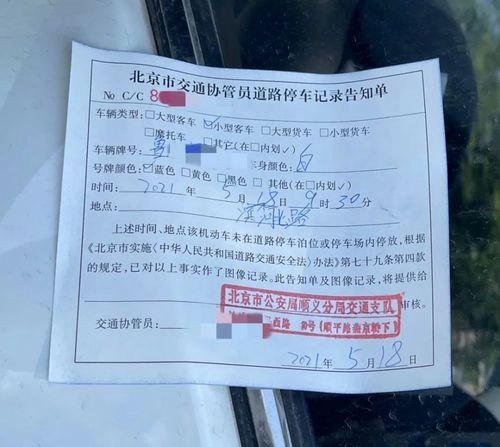 北京市交通协管员道路停车记录告知单
No C/C 8
车辆类型:□大型客车 ☑小型客车 □大型货车 □小型货车
□摩托车 □其它(在□内划√)
车辆牌号: 车身颜色:白
号牌颜色:☑蓝色 □黄色 □黑色 □其他(在□内划√)
时间: 2021 年 5 月 18 日 9 时 30 分
地点: 滨河北路
上述时间、地点该机动车未在道路停车泊位或停车场内停放,根据
《北京市实施〈中华人民共和国道路交通安全法〉办法》第七十九条第四款
的规定,已对以上事实作了图像记录。此告知单及图像记录,将提供给
北京市公安局顺义分局交通支队 审核。
西路 号(顺平路燕京桥下)
交通协管员:
2021 年 5 月 18 日